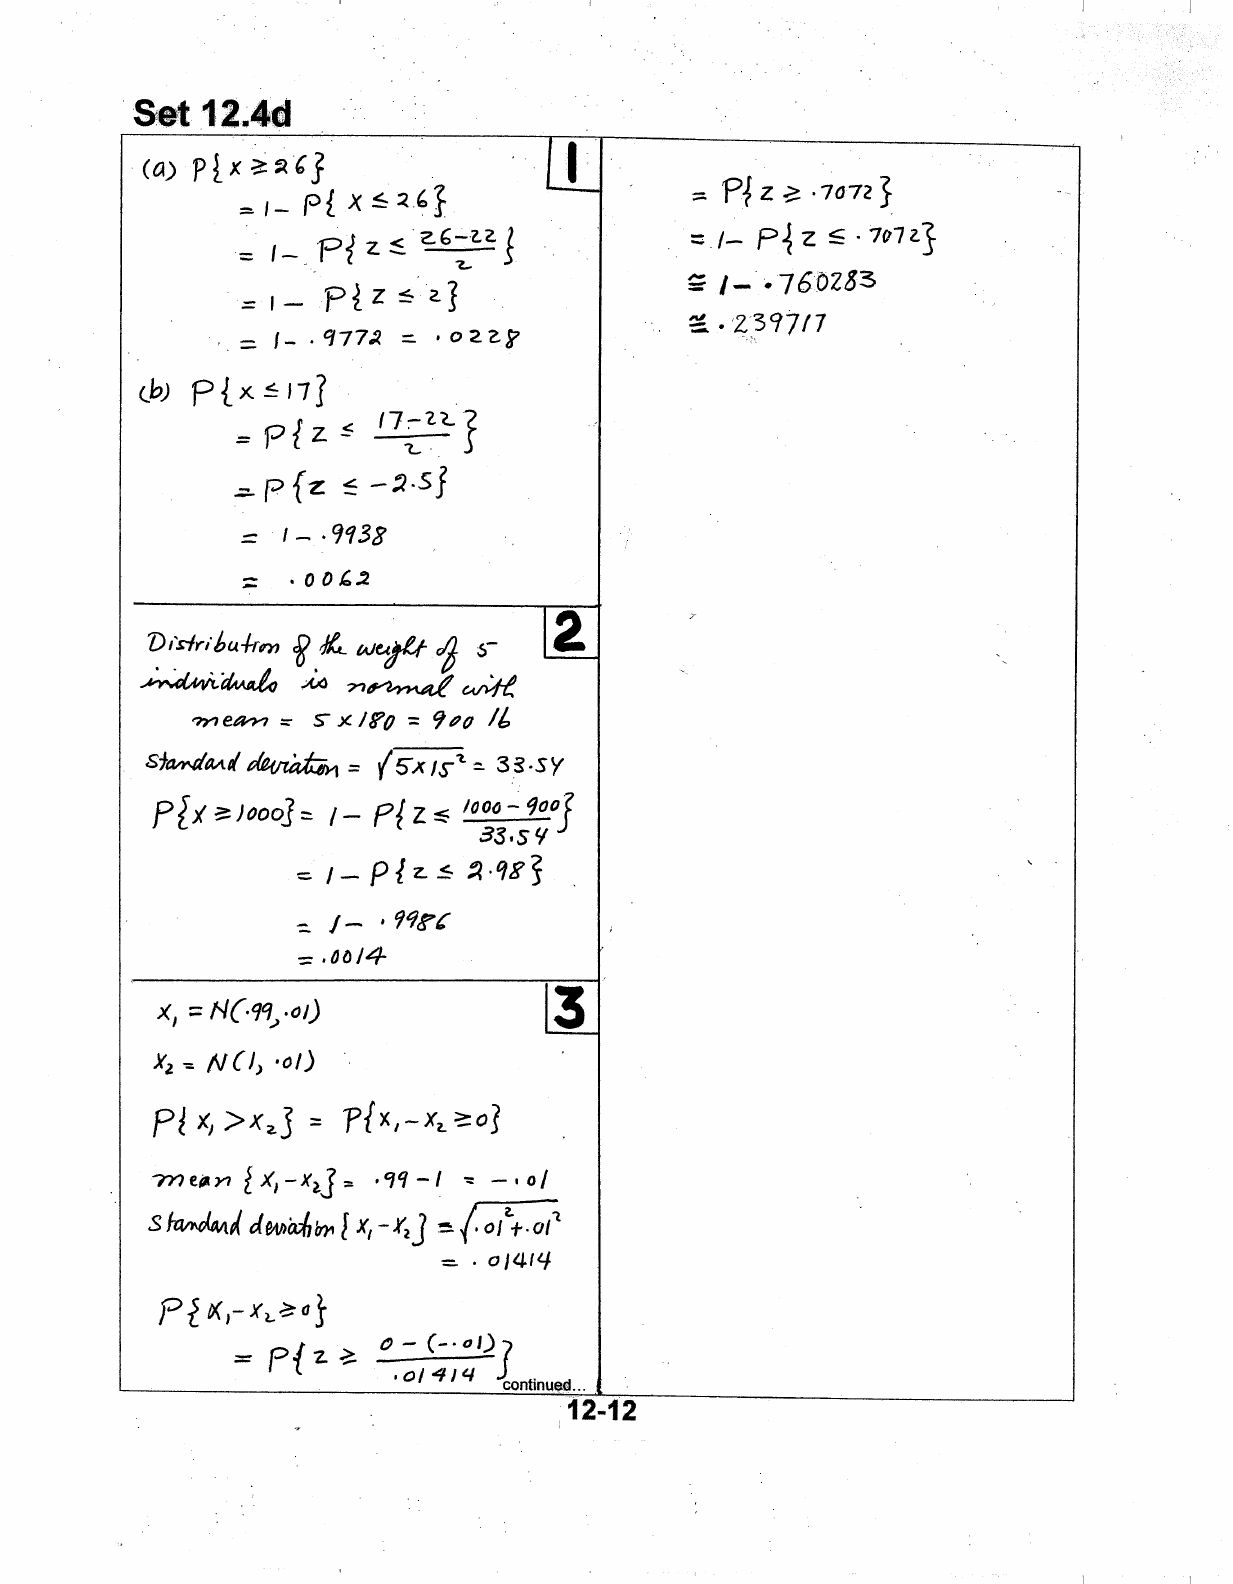 Set 12.4d
1
(a) P{x ≥ 26}
= 1 - P{x ≤ 26}
= 1 - P{z ≤ (26-22)/2}
= 1 - P{z ≤ 2}
= 1 - .9772 = .0228
(b) P{x ≤ 17}
= P{z ≤ (17-22)/2}
= P{z ≤ -2.5}
= 1 - .9938
= .0062
2
Distribution of the weight of 5
individuals is normal with
mean = 5 x 180 = 900 lb
Standard deviation = √(5×15²) = 33.54
P{x ≥ 1000} = 1 - P{z ≤ (1000-900)/33.54}
= 1 - P{z ≤ 2.98}
= 1 - .9986
= .0014
3
x₁ = N(.99, .01)
x₂ = N(1, .01)
P{x₁ > x₂} = P{x₁ - x₂ ≥ 0}
mean {x₁ - x₂} = .99 - 1 = -.01
Standard deviation {x₁ - x₂} = √(.01² + .01²)
= .01414
P{x₁ - x₂ ≥ 0}
= P{z ≥ (0-(-.01))/.01414}
continued...
= P{z ≥ .7072}
= 1 - P{z ≤ .7072}
≅ 1 - .760283
≅ .239717
12-12